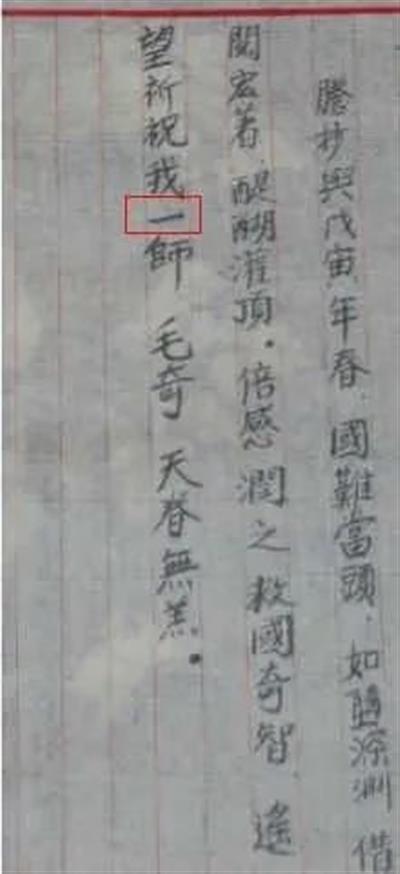 謄抄與戊寅年春．國難當頭．如墮深渊 借
閱宏著．醍醐灌頂．倍感潤之救國奇智．遙
望祈祝我一師 毛奇 天眷無恙．